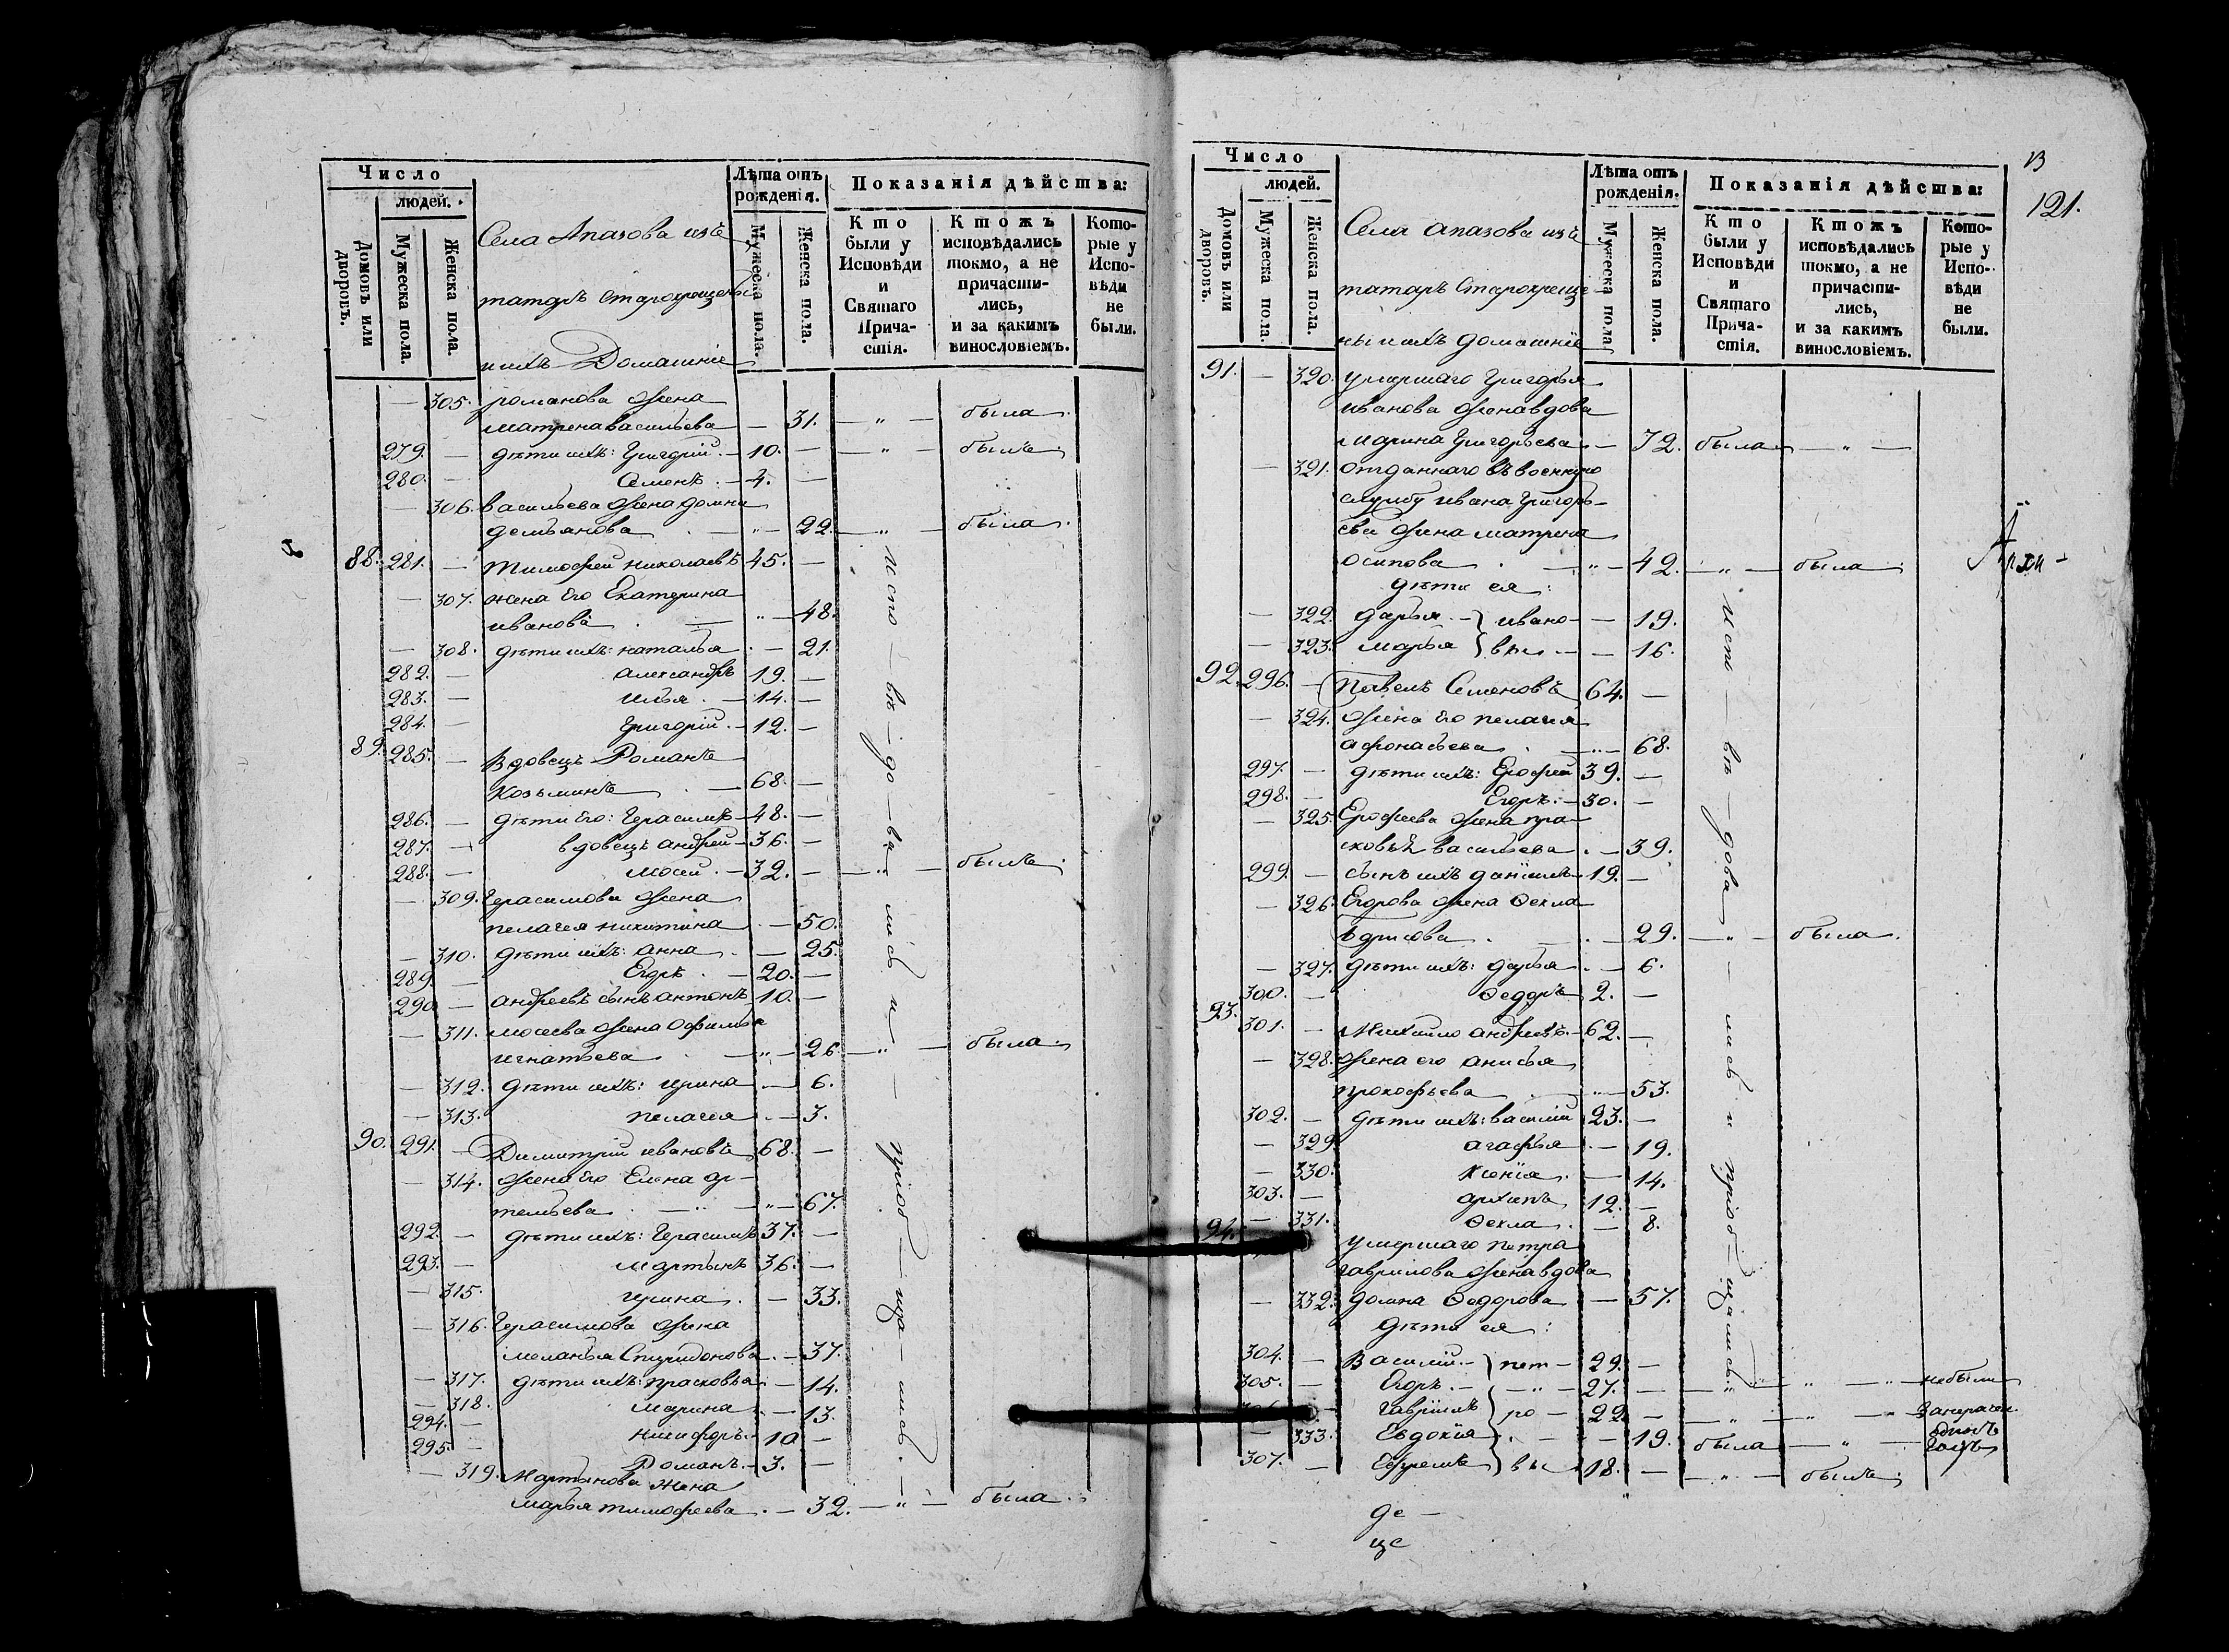 Число
людей.
Домовъ или дворовъ.
Мужеска пола.
Женска пола.
Села Апазова изъ
татаръ старокрещены
и ихъ Домашніе
Лѣта отъ рожденія.
Мужеска пола.
Женска пола.
Показанія дѣйства:
Кто были у Исповѣди и Святаго Причастія.
Ктожъ исповѣдались токмо, а не причастились, и за какимъ винословіемъ.
Которые у Исповѣди не были.
— 305. романова жена
матрена васильева — 31. — " — была.
279. — дѣти ихъ: Григорій. — 10. — — " — былъ
280. — Семенъ. — 4. —
— 306. васильева жена домна
демьянова — " — 22. — " — была.
88. 281. — тимофей николаевъ 45. —
— 307. жена Его Екатерина
иванова . — " — 48.
— 308. дѣти ихъ: наталья . — 21.
282. — александръ 19. —
283. — илья . — 14. —
284. — григорій. — 12. —
89. 285. — вдовецъ Романъ
козьминъ . — 68. —
286. — дѣти Его: Герасимъ — 48. —
287. — вдовецъ андрей — 36. —
288. — мосей . — 32. — — " — былъ.
— 309. Герасимова жена
пелагея никитина . — 50.
— 310. дѣти ихъ: анна . — 25.
289. — Егоръ . — 20. —
290. — андреевъ сынъ антонъ 10. —
— 311. мосеева жена Офимья
игнатьева . — " — 26. — " — была.
— 312. дѣти ихъ: ирина . — 6.
— 313. пелагея . — 3.
90. 291. — Димитрій ивановъ 68. —
— 314. жена Его Елена ар-
темьева . — " — " — 67.
292. — дѣти ихъ: Герасимъ 37. —
293. — мартынъ 36. —
— 315. ирина . — 33.
— 316. Герасимова жена
меланья Спиридонова . — 37.
— 317. дѣти ихъ: прасковья . — 14.
— 318. марина . — 13.
294. — никифоръ. — 10 —
295. — Романъ. — 3. —
— 319. Мартынова жена
марья тимофеева . — 32. — " — была.
испо — вѣ — до — ва лись и — пріоб — ща — лись.
13
121.
Число
людей.
Домовъ или дворовъ.
Мужеска пола.
Женска пола.
Села апазова изъ
татаръ Старокреще
ны и ихъ домашніе
Лѣта отъ рожденія.
Мужеска пола.
Женска пола.
Показанія дѣйства:
Кто были у Исповѣди и Святаго Причастія.
Ктожъ исповѣдались токмо, а не причастились, и за какимъ винословіемъ.
Которые у Исповѣди не были.
91. — 320. умершаго Григорья
иванова жена вдова
марина Григорьева — 72. была — " —
— 321. отданнаго въ военную
службу ивана Григорь-
ева жена матрена
осипова . — " — 42. — " — была.
Архи-
дѣти ея:
— 322. дарья. — } ивано — — 19.
— 323. марья } вы — — 16.
92. 296. — Павелъ Семеновъ 64. —
— 324. жена Его пелагея
афонасьева . — " — 68.
297. — дѣти ихъ: Ерофей 39. —
298. — Егоръ. — 30. —
— 325. Ерофеева жена пра-
сковья васильева . — 39.
299. — сынъ ихъ данилъ 19. —
— 326. Егорова жена Фекла
. — 29. — " — была.
— 327. дѣти ихъ: дарья . — 6.
300. — Федоръ 2. —
93. 301. — Михайло андреевъ. — 62. —
— 328. жена его анисья
прокофьева — " — 53.
302. — дѣти ихъ: василій 23. —
— 329. агафья . — 19.
— 330. Ксенія . — 14.
303. — архипъ 12. —
— 331. Фекла . — 8.
94. умершаго петра
гаврилова жена вдова
— 332. домна Федорова — 57.
дѣти ея:
304. — Василій. — } пет — 29. —
305. — Егоръ. — — " — 27. — — " — " — " — небыли
— гаврилъ } ро — 22. — — " — " — "
— 333. Евдокія . — — 19. была — " —
307. — Ефремъ } вы 18. — — " — былъ.
испо — вѣ — дова — лись и пріоб — щались.
де —
це